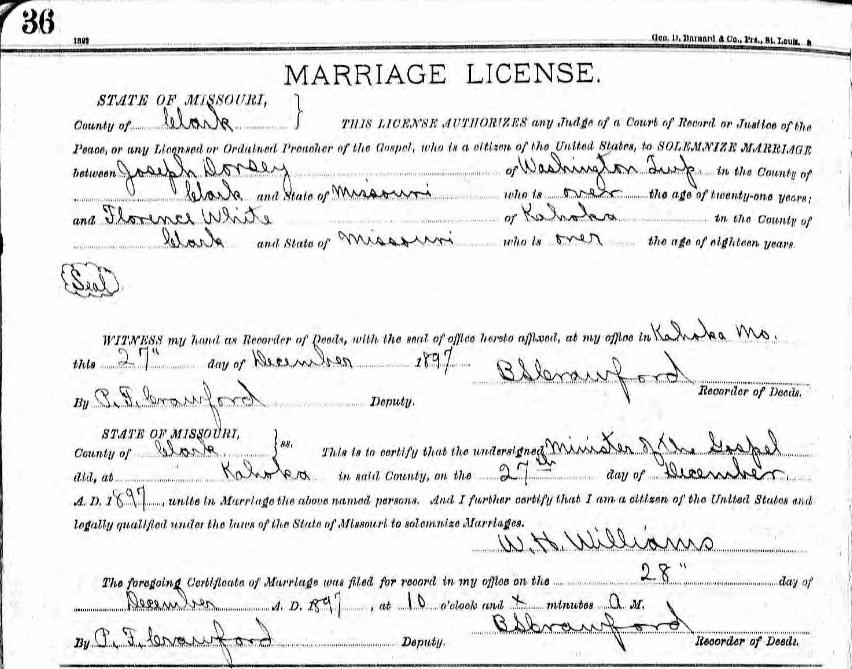 36
1892 Geo. D. Barnard & Co., Prs., St. Louis.
MARRIAGE LICENSE.
STATE OF MISSOURI,
County of Clark } THIS LICENSE AUTHORIZES any Judge of a Court of Record or Justice of the
Peace, or any Licensed or Ordained Preacher of the Gospel, who is a citizen of the United States, to SOLEMNIZE MARRIAGE
between Joseph Dorsey of Washington Twp. in the County of
Clark and State of Missouri who is over the age of twenty-one years;
and Florence White of Kahoka in the County of
Clark and State of Missouri who is over the age of eighteen years.
Seal
WITNESS my hand as Recorder of Deeds, with the seal of office hereto affixed, at my office in Kahoka Mo.
this 27" day of December 1897
B S Crawford
Recorder of Deeds.
By P. T. Crawford Deputy.
STATE OF MISSOURI,
County of Clark } ss. This is to certify that the undersigned Minister of the Gospel
did, at Kahoka in said County, on the 27th day of December
A. D. 1897, unite in Marriage the above named persons. And I further certify that I am a citizen of the United States and
legally qualified under the laws of the State of Missouri to solemnize Marriages.
W. H. Williams
The foregoing Certificate of Marriage was filed for record in my office on the 28" day of
December A. D. 1897, at 10 o'clock and x minutes A. M.
B S Crawford
By P. T. Crawford Deputy. Recorder of Deeds.